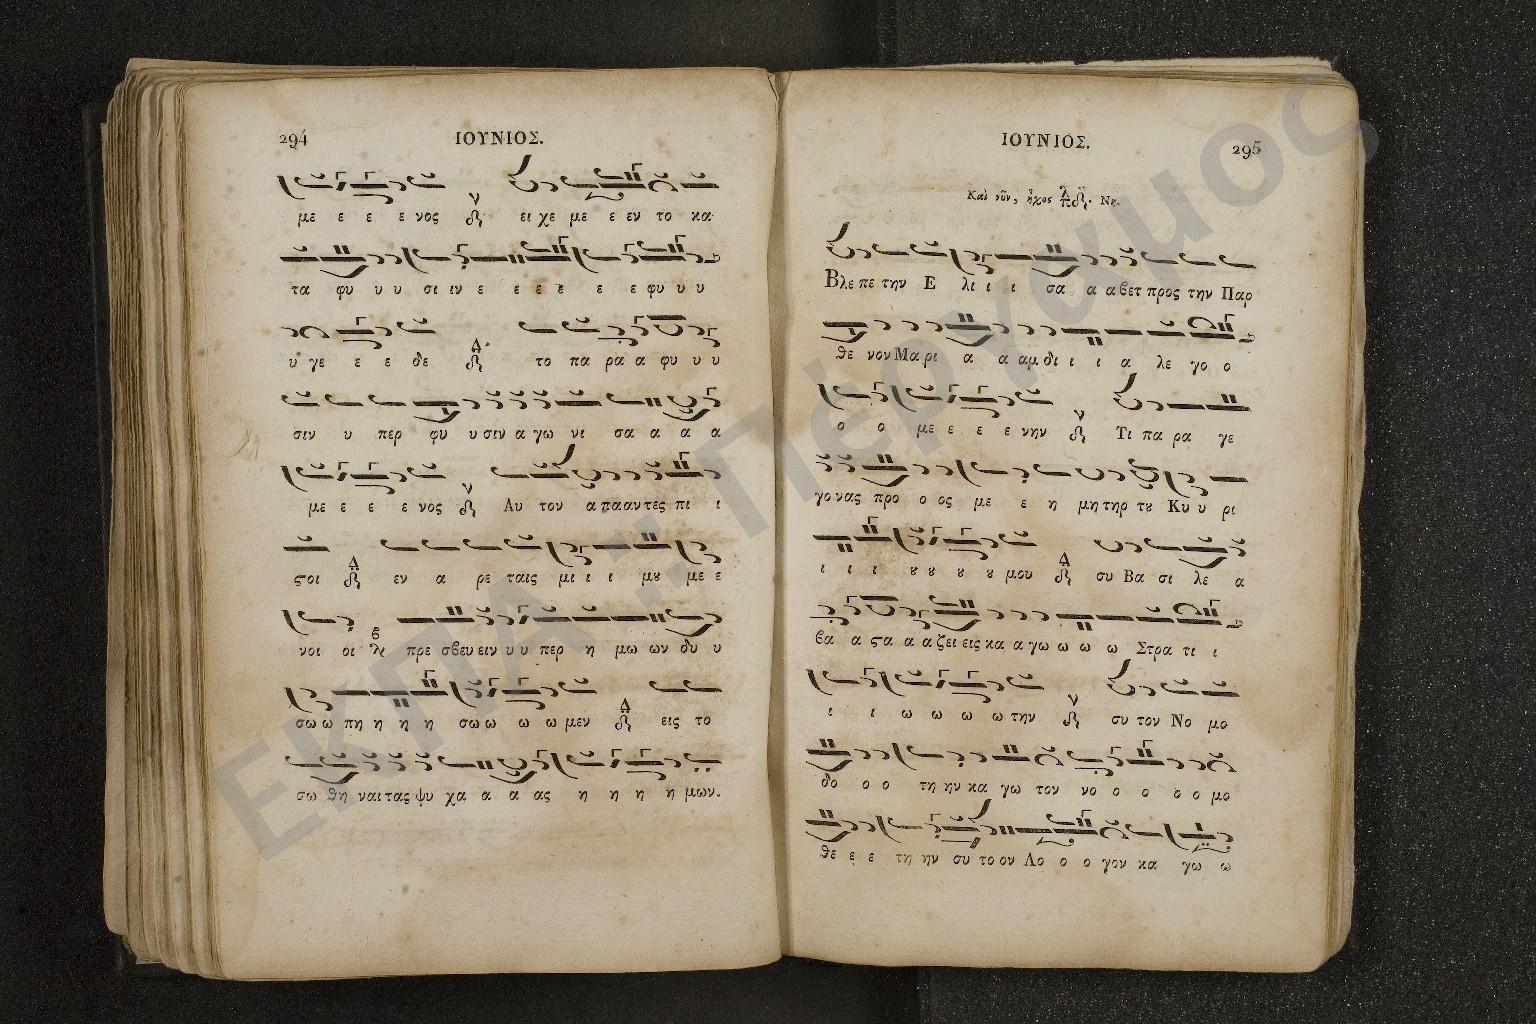 294 ΙΟΥΝΙΟΣ.
με ε ε ε νος ει χε με ε εν το κα
τα φυ υ υ σι ιν ε ε ε ε ε ε φυ υ υ
υ γε ε ε δε το πα ρα α φυ υ υ
σιν υ περ φυ υ σιν α γω νι σα α α α
με ε ε ε νος Αυ τον α πα αν τες πι ι
ϛοι εν α ρε ταις μι ι ι μȣ με ε
νοι οι πρε σβευ ειν υ υ περ η μω ων δυ υ
σω ω πη η η η σω ω ω ω μεν εις το
σω θη ναι τας ψυ χα α α ας η η η η μων.
ΙΟΥΝΙΟΣ. 295
Καὶ νῦν, ἦχος Νη.
Βλε πε την Ε λι ι ι σα α α βετ προς την Παρ
θε νον Μα ρι α α αμ δι ι ι α λε γο ο
ο ο με ε ε ε νην Τι πα ρα γε
γο νας προ ο ος με ε η μη τηρ τȣ Κυ υ ρι
ι ι ι ȣ ȣ ȣ ȣ μου συ Βα σι λε α
βα α ϛα α α ζει εις κα α γω ω ω ω Στρα τι ι
ι ι ω ω ω ω την συ τον Νο μο
δο ο ο τη ην κα γω τον νο ο ο ο ο μο
θε ε ε τη ην συ το ον Λο ο ο γον κα γω ω
ΕΚΠΑ / Πέργαμος